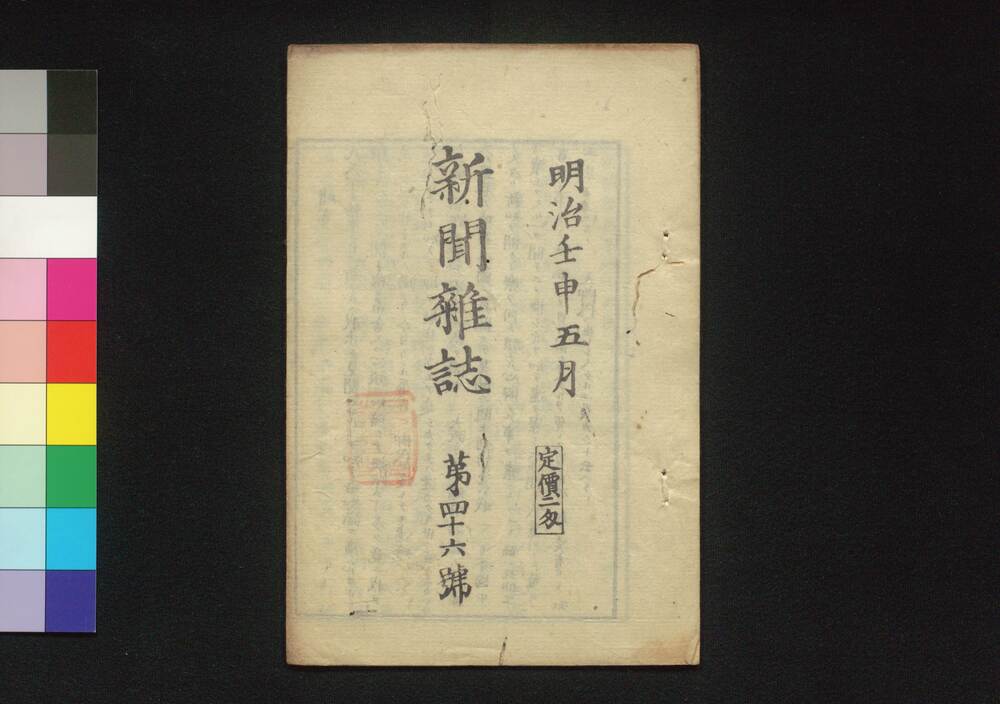 明治壬申五月
定價二匁
新聞雜誌
第四十六號